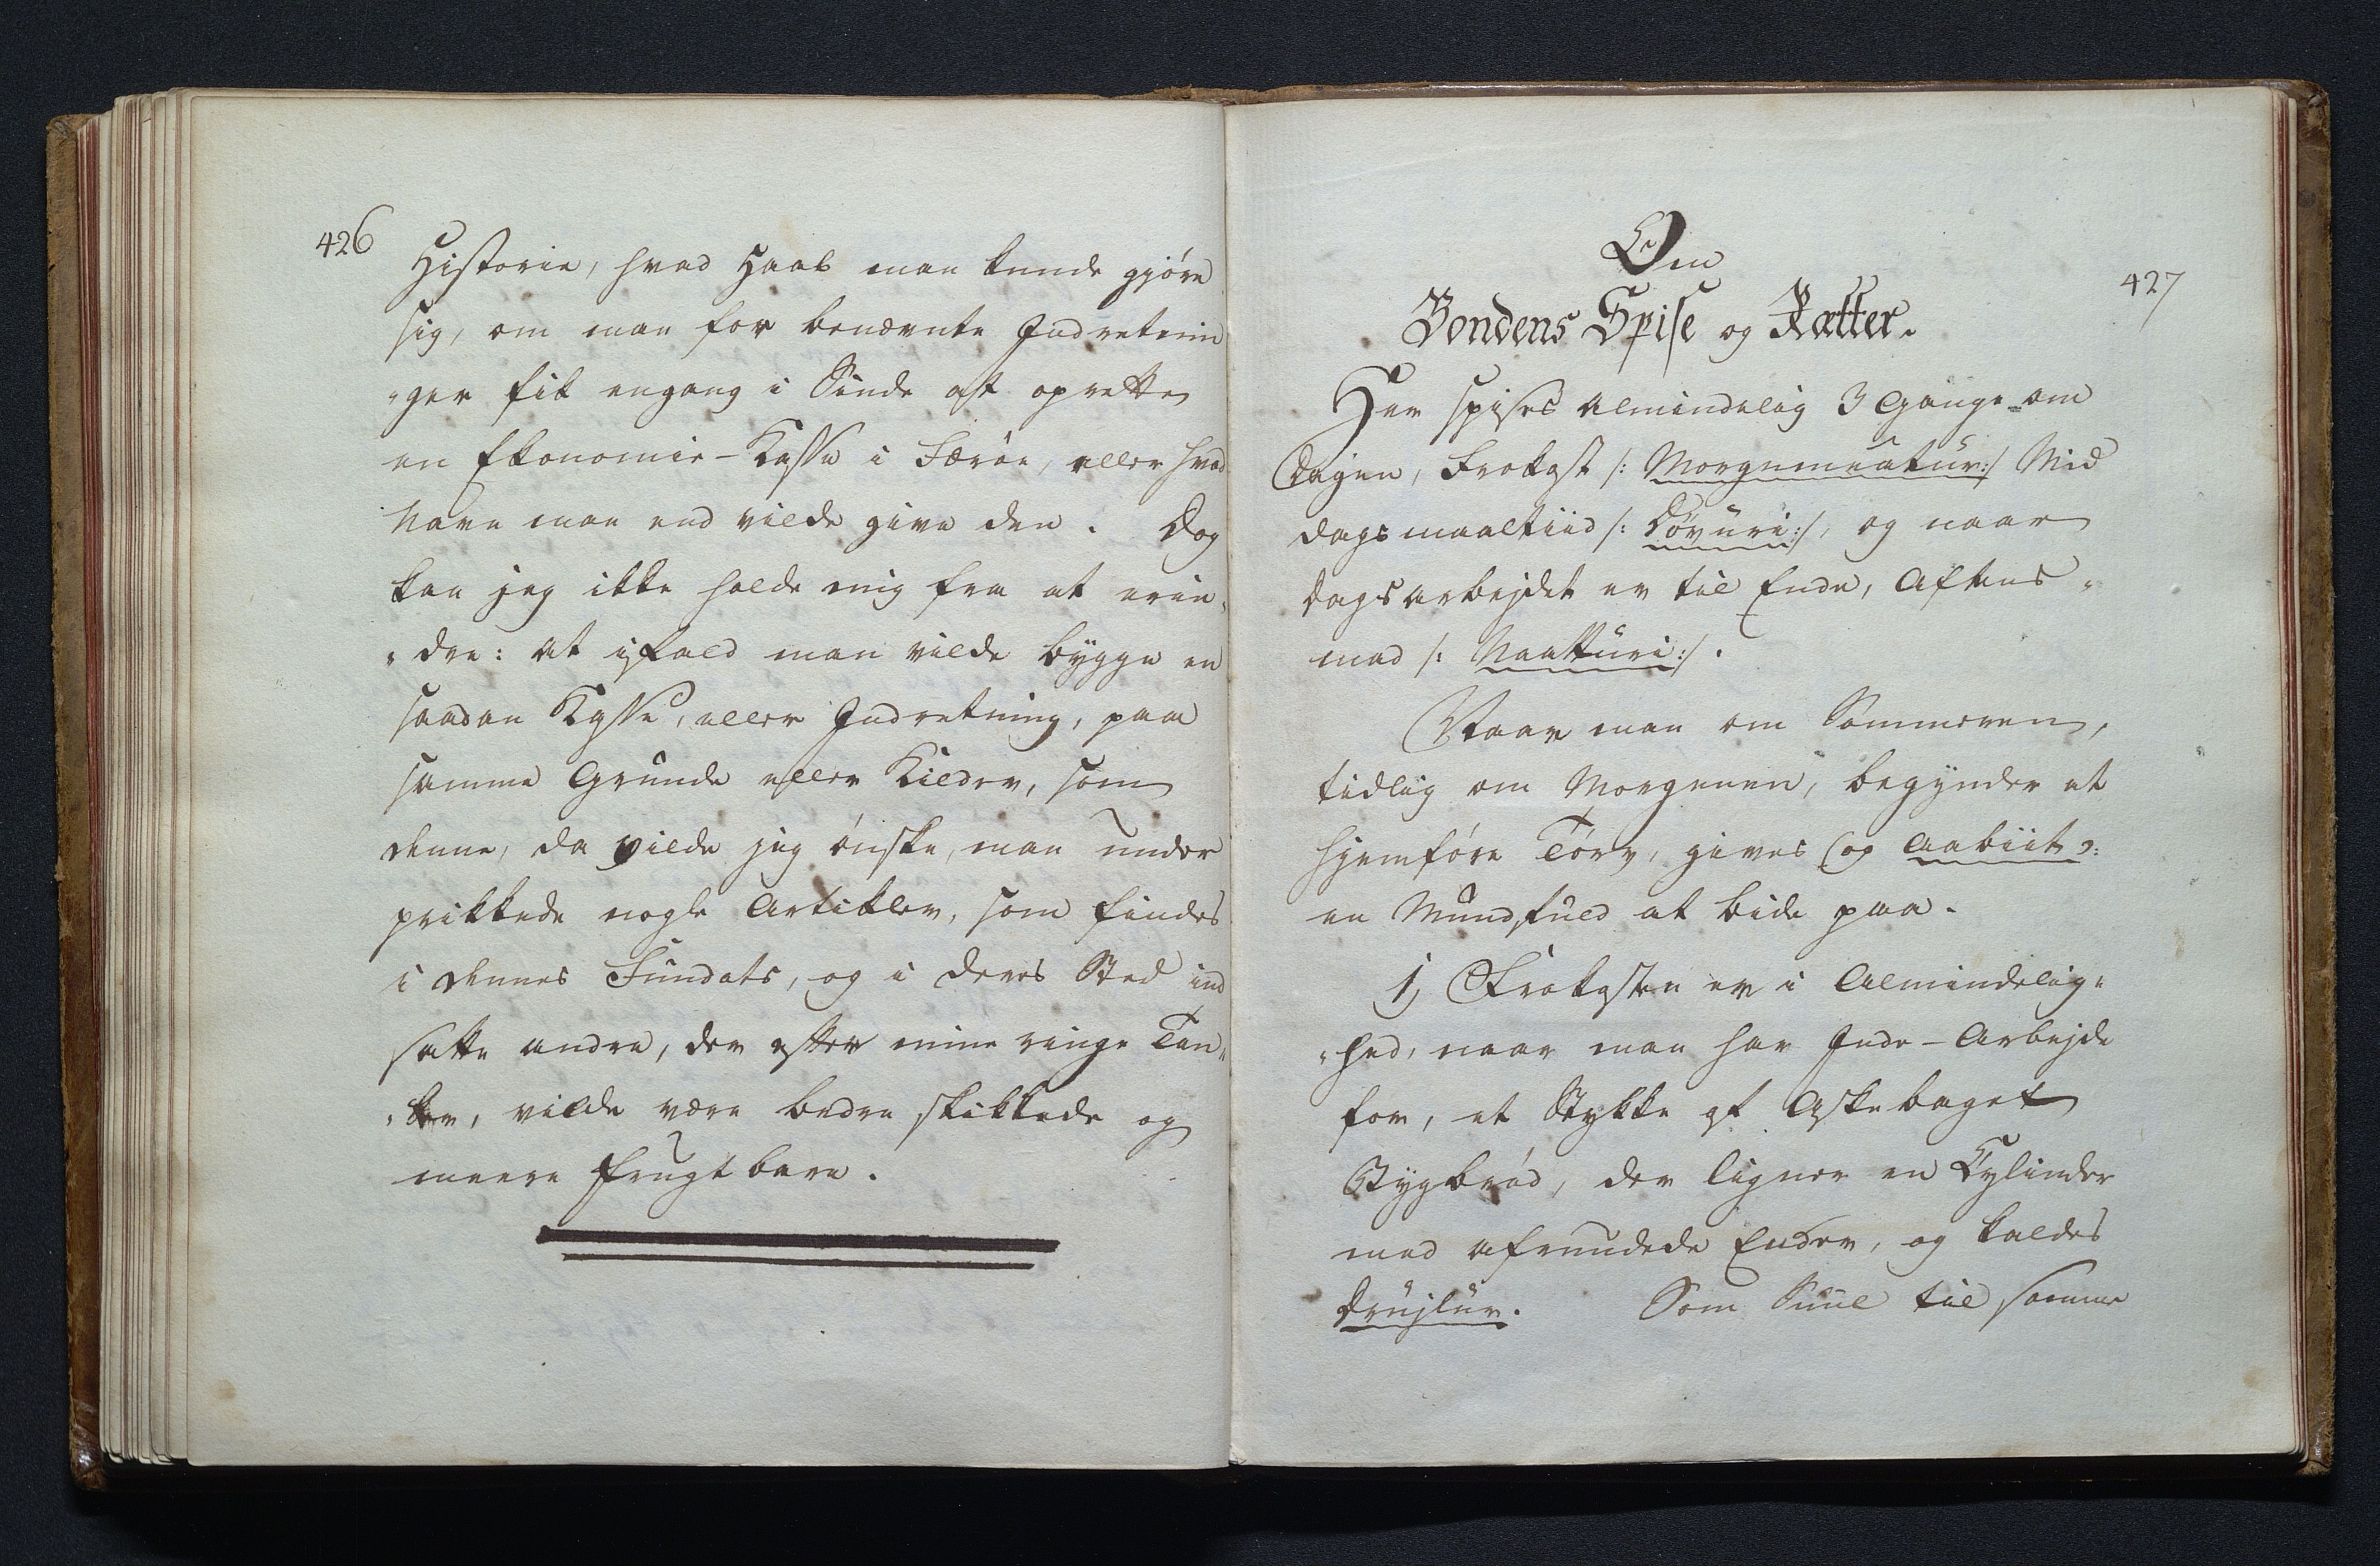 426
Historie, hvad Haab man kunde gjöre
sig, om man for benævnte Indretnin
"ger fik engang i Sinde at oprette
en Ekonomie-Kasse i Færöe, eller hvad
Navn man end vilde give den. Dog
kan jeg ikke holde mig fra at erin"
"dre: at ifald man vilde bygge en
saadan Kasse, eller Indretning, paa
samme Grunde eller Kilder, som
denne, da vilde jeg önske, man under
prikkede nogle Artikler, som findes
i dennes Fundats, og i deres Sted ind
satte andre, der efter mine ringe Tan"
"ker, vilde være bedre skikkede og
meere frugtbare.
427
Om
Bondens Spise og Rætter.
Her spises almindelig 3 Gange om
Dagen, Frokost /: Morgunmeatur:/ Mid
dagsmaaltiid /: Dövuri:/, og naar
Dagsarbejdet er til Ende, Aftens"
mad /: Naatturi:/.
Naar man om Sommeren,
tidlig om Morgenen, begynder at
hjemföre Törv, gives og Aabiit ɔ:
en Mundfuld at bide paa.
1) Frokosten er i Almindelig"
"hed, naar man har Inde-Arbejde
for, et Stykke af Askebaget
Bygbröd, der ligner en Cylinder
med afrundede Ender, og kaldes
Drujlur. Som Suul til samme